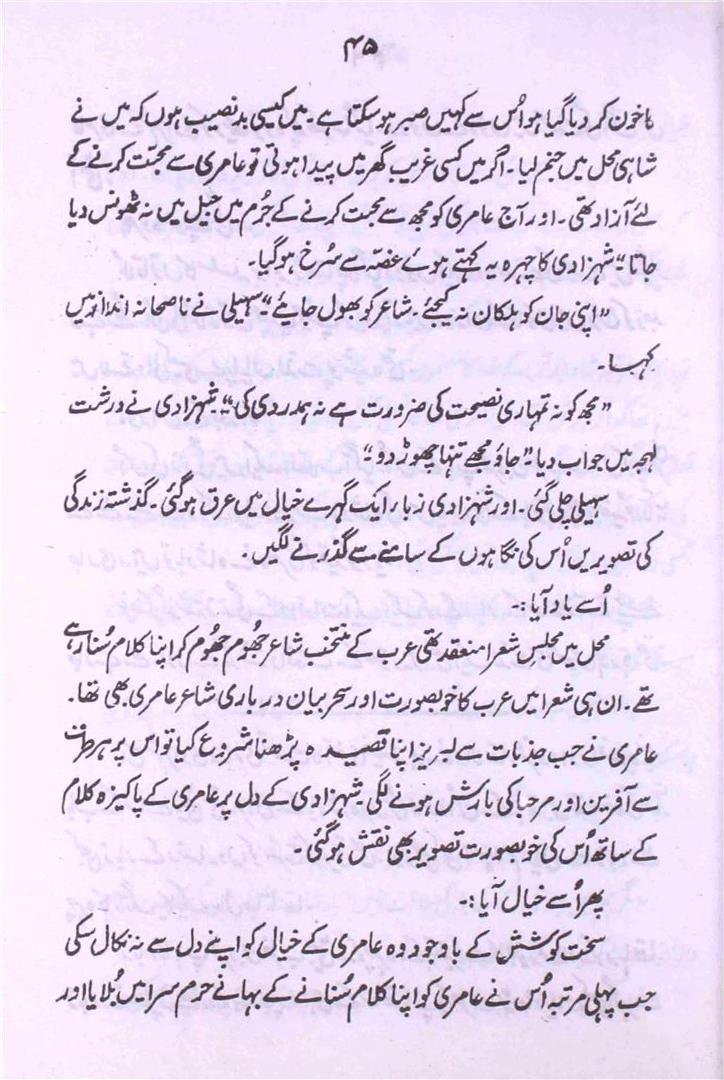 ۴۵
کا خون کر دیا گیا ہو اُس سے کہیں صبر ہو سکتا ہے۔ میں کیسی بدنصیب ہوں کہ میں نے
شاہی محل میں جنم لیا۔ اگر میں کسی غریب گھر میں پیدا ہوتی تو عامری سے محبّت کرنے کے
لئے آزاد تھی۔ اور آج عامری کو مجھ سے محبت کرنے کے جُرم میں جیل میں نہ ٹھونس دیا
جاتا" شہزادی کا چہرہ یہ کہتے ہوئے غصّہ سے سُرخ ہوگیا۔
"اپنی جان کو ہلکان نہ کیجئے۔ شاعر کو بھول جایئے" سہیلی نے ناصحانہ انداز میں
کہا۔
"مجھ کو نہ تمہاری نصیحت کی ضرورت ہے نہ ہمدردی کی" شہزادی نے درشت
لہجہ میں جواب دیا "جاؤ مجھے تنہا چھوڑ دو"
سہیلی چلی گئی۔ اور شہزادی زہار ایک گہرے خیال میں غرق ہوگئی۔ گذشتہ زندگی
کی تصویریں اُس کی نگاہوں کے سامنے سے گذرنے لگیں۔
اُسے یاد آیا:۔
محل میں مجلسِ شعرا منعقد تھی عرب کے منتخب شاعر جھُوم جھُوم کر اپنا کلام سُنا رہے
تھے۔ ان ہی شعرا میں عرب کا خوبصورت اور سحر بیان درباری شاعر عامری بھی تھا۔
عامری نے جب جذبات سے لبریز اپنا قصیدہ پڑھنا شروع کیا تو اس پر ہر طرف
سے آفرین اور مرحبا کی بارش ہونے لگی۔ شہزادی کے دل پر عامری کے پاکیزہ کلام
کے ساتھ اُس کی خوبصورت تصویر بھی نقش ہوگئی۔
پھر اُسے خیال آیا:۔
سخت کوشش کے باوجود وہ عامری کے خیال کو اپنے دل سے نہ نکال سکی
جب پہلی مرتبہ اُس نے عامری کو اپنا کلام سُنانے کے بہانے حرم سرا میں بُلایا اور